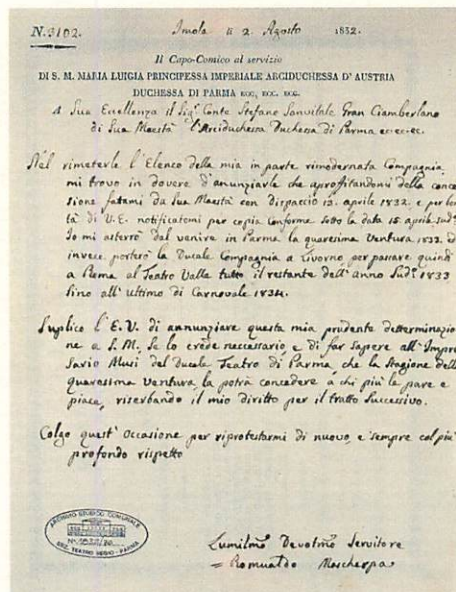 N. 3102. Imola li 2. Agosto 1832.
Il Capo-Comico al servizio
DI S. M. MARIA LUIGIA PRINCIPESSA IMPERIALE ARCIDUCHESSA D' AUSTRIA
DUCHESSA DI PARMA ECC, ECC. ECC.
A Sua Eccellenza il Sigr Conte Stefano Sanvitale Gran Ciamberlano
di Sua Maestà l'Arciduchessa Duchessa di Parma ec: ec: ec.
Nel rimeterle l'Elenco della mia in parte rimodernata Compagnia
mi trovo in dovere d'anunziarle che aprofitandomi della conce
sione fatami da Sua Maestà con dispaccio 13. aprile 1832. e per bon
tà di V. E. notificatomi per copia conforme sotto la data 15 aprile sud.o
Io mi asterrò dal venire in Parma la quaresima ventura 1833. ed
invece porterò la Ducale Compagnia a Livorno per passare quindi
a Roma al Teatro Valle tutto il restante dell'anno Sud.o 1833
sino all'ultimo di Carnovale 1834.
Suplico l'E. V. di annunziare questa mia prudente detterminazio
ne a S. M. se lo crede neccessario, e di far sapere all'Impre
sario Alusi del Ducale Teatro di Parma, che la Stagione della
quaresima ventura la potrà concedere a chi più le pare e
piace, riserbando il mio diritto per il tratto Successivo.
Colgo quest'Occasione per riprotestarmi di nuovo, e sempre col più
profondo rispetto
ARCHIVIO STORICO COMUNALE
SEZ. TEATRO REGIO - PARMA
L'umilmo Devotmo Servitore
= Romualdo Mascherpa